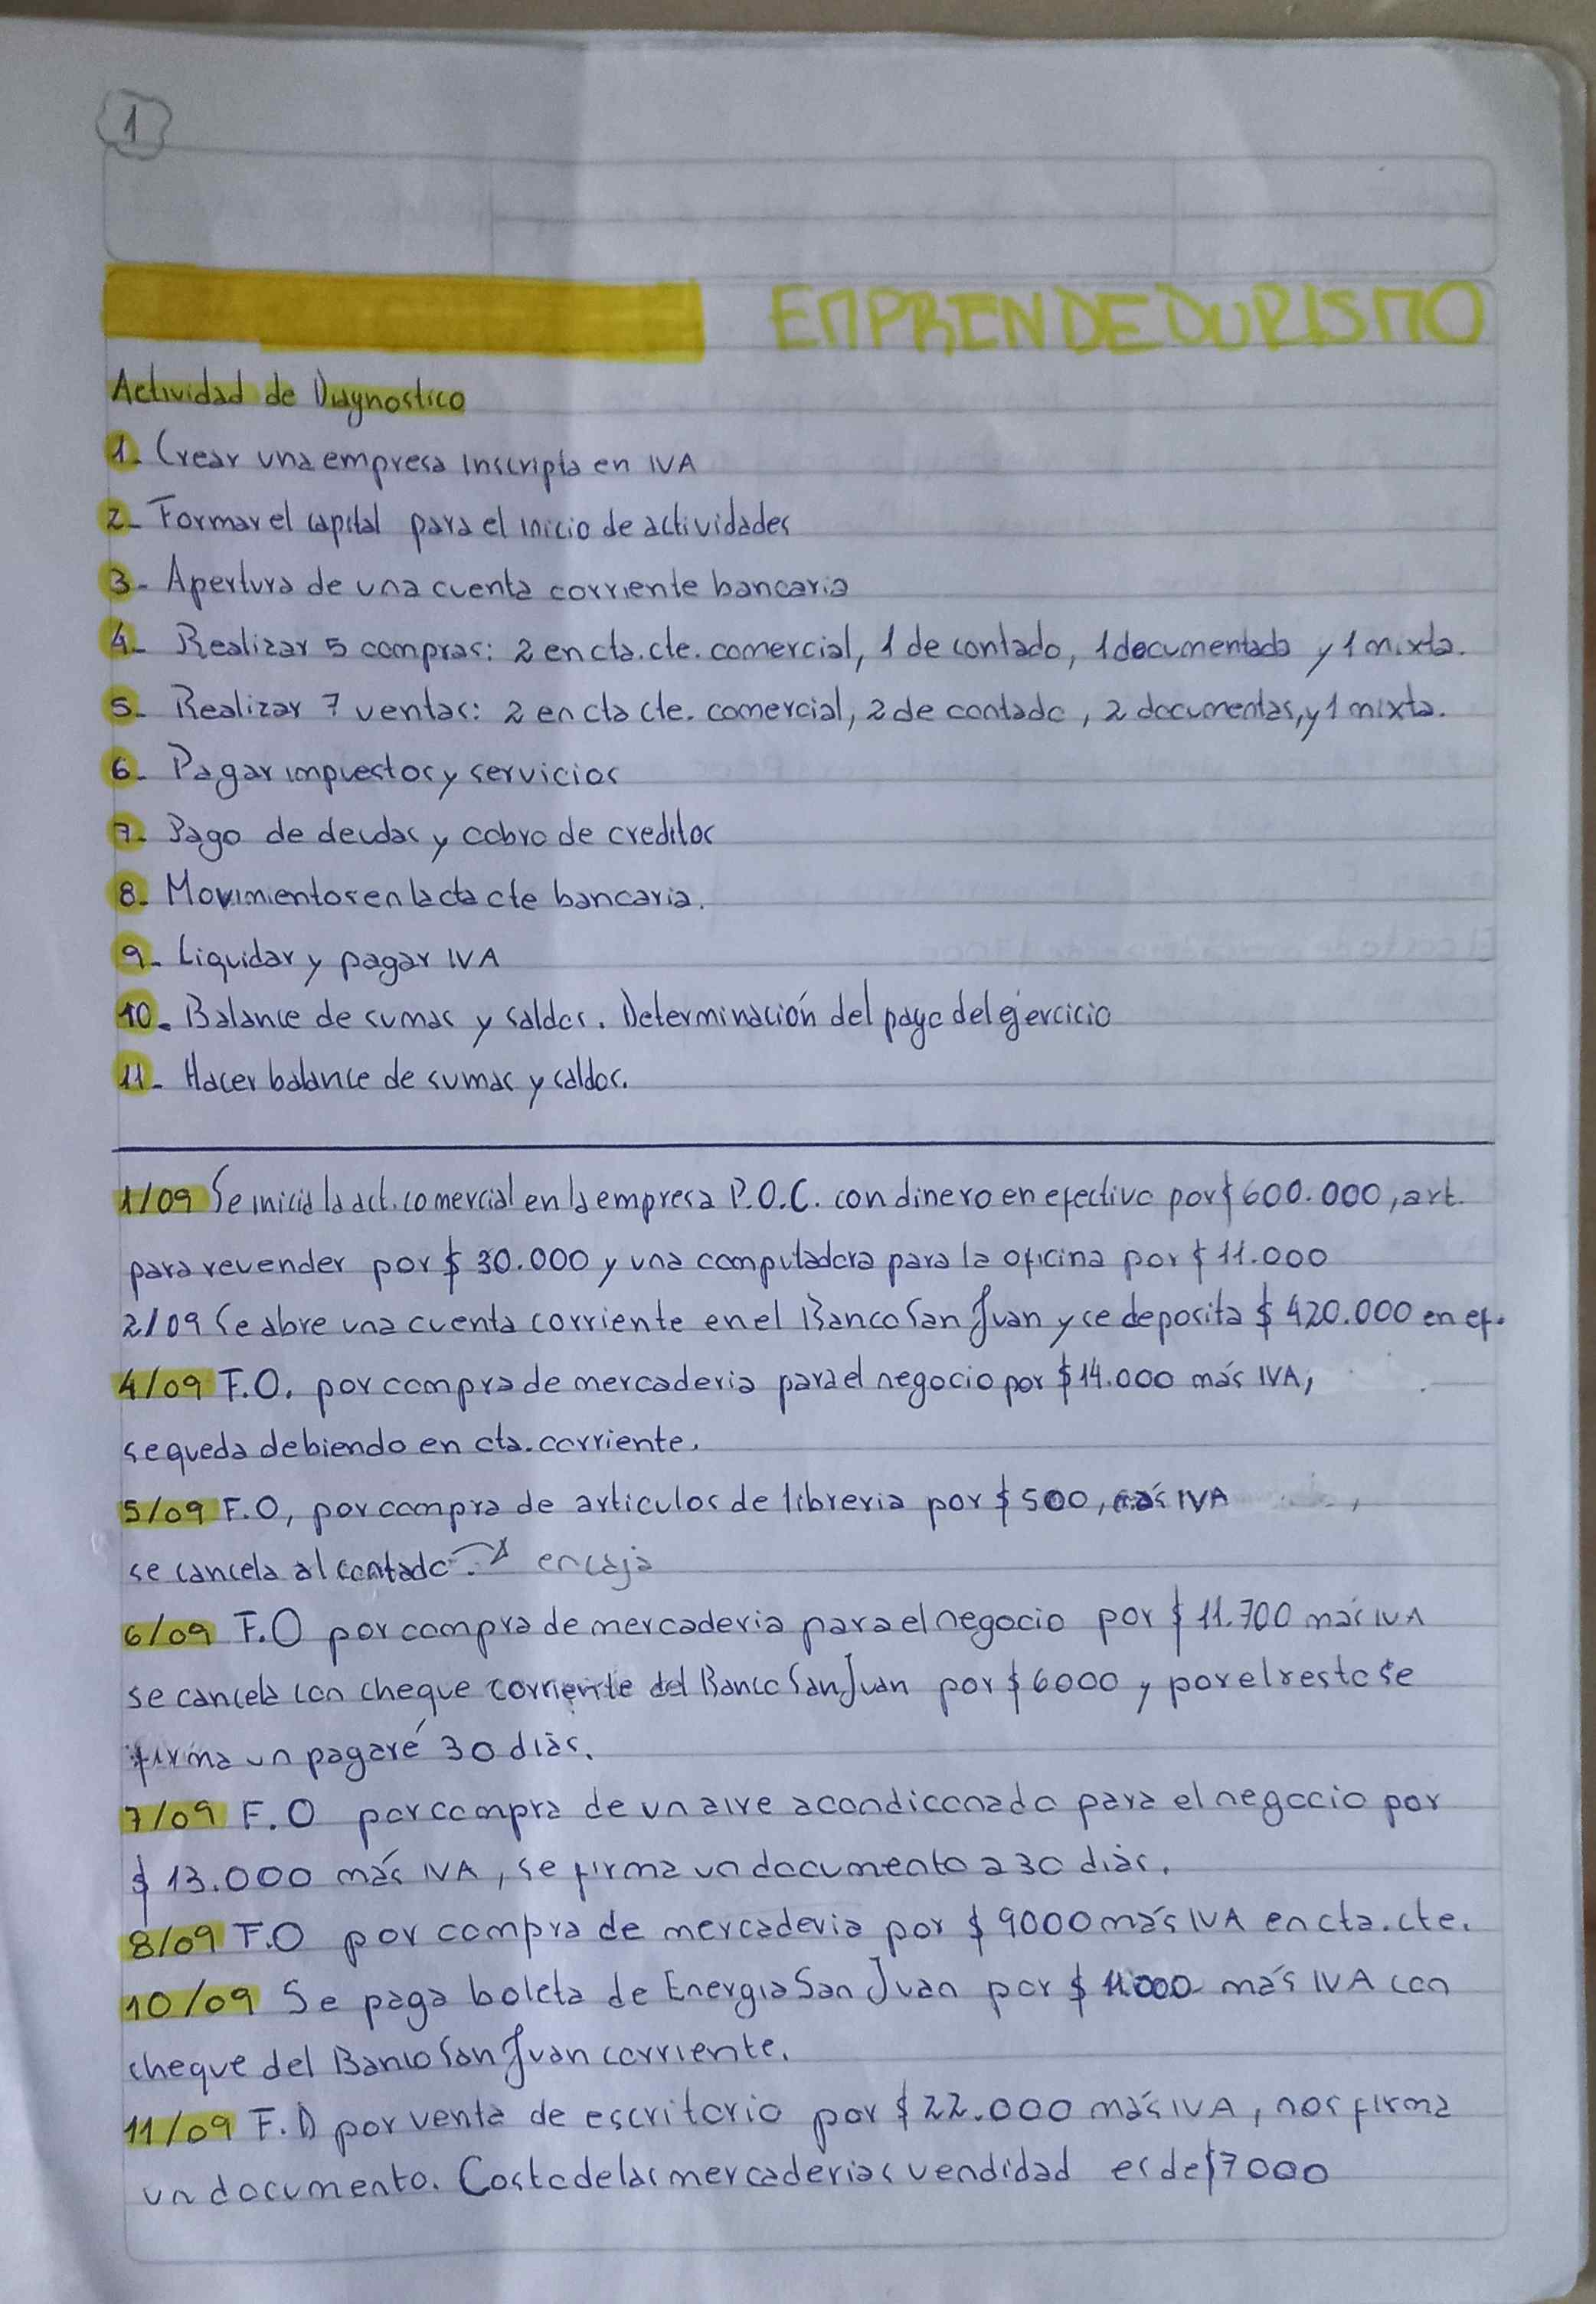 1
EMPRENDEDURISMO
Actividad de Diagnostico
1- Crear una empresa inscripta en IVA
2- Formar el capital para el inicio de actividades
3- Apertura de una cuenta corriente bancaria
4- Realizar 5 compras: 2 en cta. cte. comercial, 1 de contado, 1 documentada y 1 mixta.
5- Realizar 7 ventas: 2 en cta cte. comercial, 2 de contado, 2 documentas, y 1 mixta.
6- Pagar impuestos y servicios
7- Pago de deudas y cobro de creditos
8- Movimientos en la cta cte bancaria.
9- Liquidar y pagar IVA
10- Balance de sumas y saldos. Determinación del pago del ejercicio
11- Hacer balance de sumas y saldos.
1/09 Se inicia la act. comercial en la empresa P.O.C. con dinero en efectivo por $ 600.000, art.
para revender por $ 30.000 y una computadora para la oficina por $ 11.000
2/09 Se abre una cuenta corriente en el Banco San Juan y se deposita $ 420.000 en ef.
4/09 F.O. por compra de mercaderia para el negocio por $ 14.000 más IVA,
se queda debiendo en cta. corriente.
5/09 F.O, por compra de articulos de libreria por $ 500, más IVA ,
se cancela al contado. → en caja
6/09 F.O por compra de mercaderia para el negocio por $ 11.700 más IVA
se cancela con cheque corriente del Banco San Juan por $ 6000 y por el resto se
firma un pagaré 30 dias.
7/09 F.O por compra de un aire acondiconado para el negocio por
$ 13.000 más IVA, se firma un documento a 30 dias.
8/09 F.O por compra de mercaderia por $ 9000 más IVA en cta. cte.
10/09 Se paga boleta de Energia San Juan por $ más IVA con
cheque del Banco San Juan corriente.
11/09 F.D por venta de escritorio por $ 22.000 más IVA, nos firma
un documento. Costo de las mercaderias vendidad es de $7000